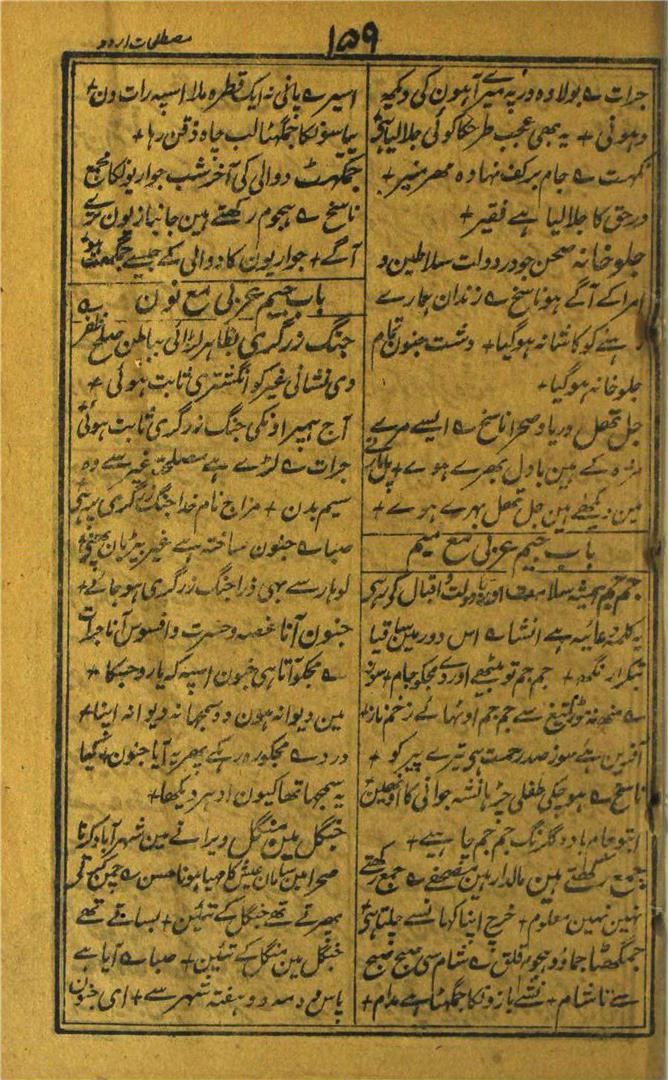 ۱۵۹
مصطلحات اردو
جرات ے بولا وہ در پہ میرے آہون کی دیکھ
دہونی + یہ بھی عجب طرحکا کوئی جلالیا ہی
نکہت ے جام بر کف نہادہ مہر منیر +
در حق کا جلالیا ہے فقیر +
جلو خانہ صحن جو در دولت سلاطین و
امرا کے آگے ہو ناسخ ے زندان ہمارے
رہنے کو کاشانہ ہوگیا + دشت جنون تمام
جلو خانہ ہوگیا +
جل تھل دریا و صحرا ناسخ ے ایسے مرے
مژہ کے ہین بادل بھرے ہوے +
مین دیکھے ہین جل تھل بہرے ہوے +
باب جیم عربی مع میم
جم جم ہمیشہ سلامت اور با دولت و اقبال
یہ کلمہ دعائیہ ہے انشا ے اس دور مین ساقیا
جم جم تو بیٹھے اور دے مجکو جام + سوز
ے منھ نہ موڑ تیغ سے جم جم اوٹھائے زخم ناز +
آفرین ہے سوز صد رحمت ہی تیرے پیر کو +
ناسخ ے ہو چکی طفلی چڑہا نشہ جوانی کا
ابتو جام بادہ گلرنگ جم جم چاہیے +
جمع رکھتے ہین مالدار ہین مصحفی ے جمع رکھتے
نہین نہین معلوم + خرچ اپنا کہا نسے چلتا ہی
جمگھٹا جماؤ و ہجوم قلق ے شام سی صبح صبح
سے تا شام + نشے بازونکا جمگھٹا ہے مدام +
اسیر ے پانی نہ ایک قطرہ ملا اسپہ رات دن +
پیاسونکا جمگھٹا لب چاہ ذقن رہا +
جمگہٹ دوالی کی آخر شب جواریونکا مجمع
ناسخ ے ہجوم رکھتے ہین جانباز یون ترے
آگے + جواریون کا دوالی کے جیسے جمگھٹ ہو
باب جیم عربی مع نون
جنگ زرگری بظاہر لڑائی بباطن صلح ظفر ے
دی نشانی غیر کو انگشتری ثابت ہوئی +
آج ہمپر اونکی جنگ زرگری ثابت ہوئی +
جرات ے لڑے ہے مصلحۃ غیر سے وہ
سیم بدن + مزاج نام خدا جنگ زرگری پہ ہی
صبا ے جنون ساختہ ہے غیر بیڑیان پہنے
لوہار سے بہی ذرا جنگ زرگری ہو جائے +
جنون آنا غصہ و حسرت و افسوس آنا جرات
ے مجکو آتا ہی جنون اسپہ کہ یارو جبکا +
مین دیوانہ ہون وہ سمجہا نہ دیوانہ اپنا +
درد ے مجکو رہ رہکے بھر یہ آیا جنون + کیا
یہ سمجہا تھا کیون ادہر دیکھا +
جنگل مین منگل ویرانے مین شہر آباد کرنا
صحرا مین سامان عیش کا مہیا ہونا حسن ے چمن کرتی
پھرتے تھے جنگل کے تئین + بساتے تھے
جنگل مین منگل کے تئین + صبا ے آیا ہے
پاس وہ مہ دو ہفتہ شہر سے + ای جنون